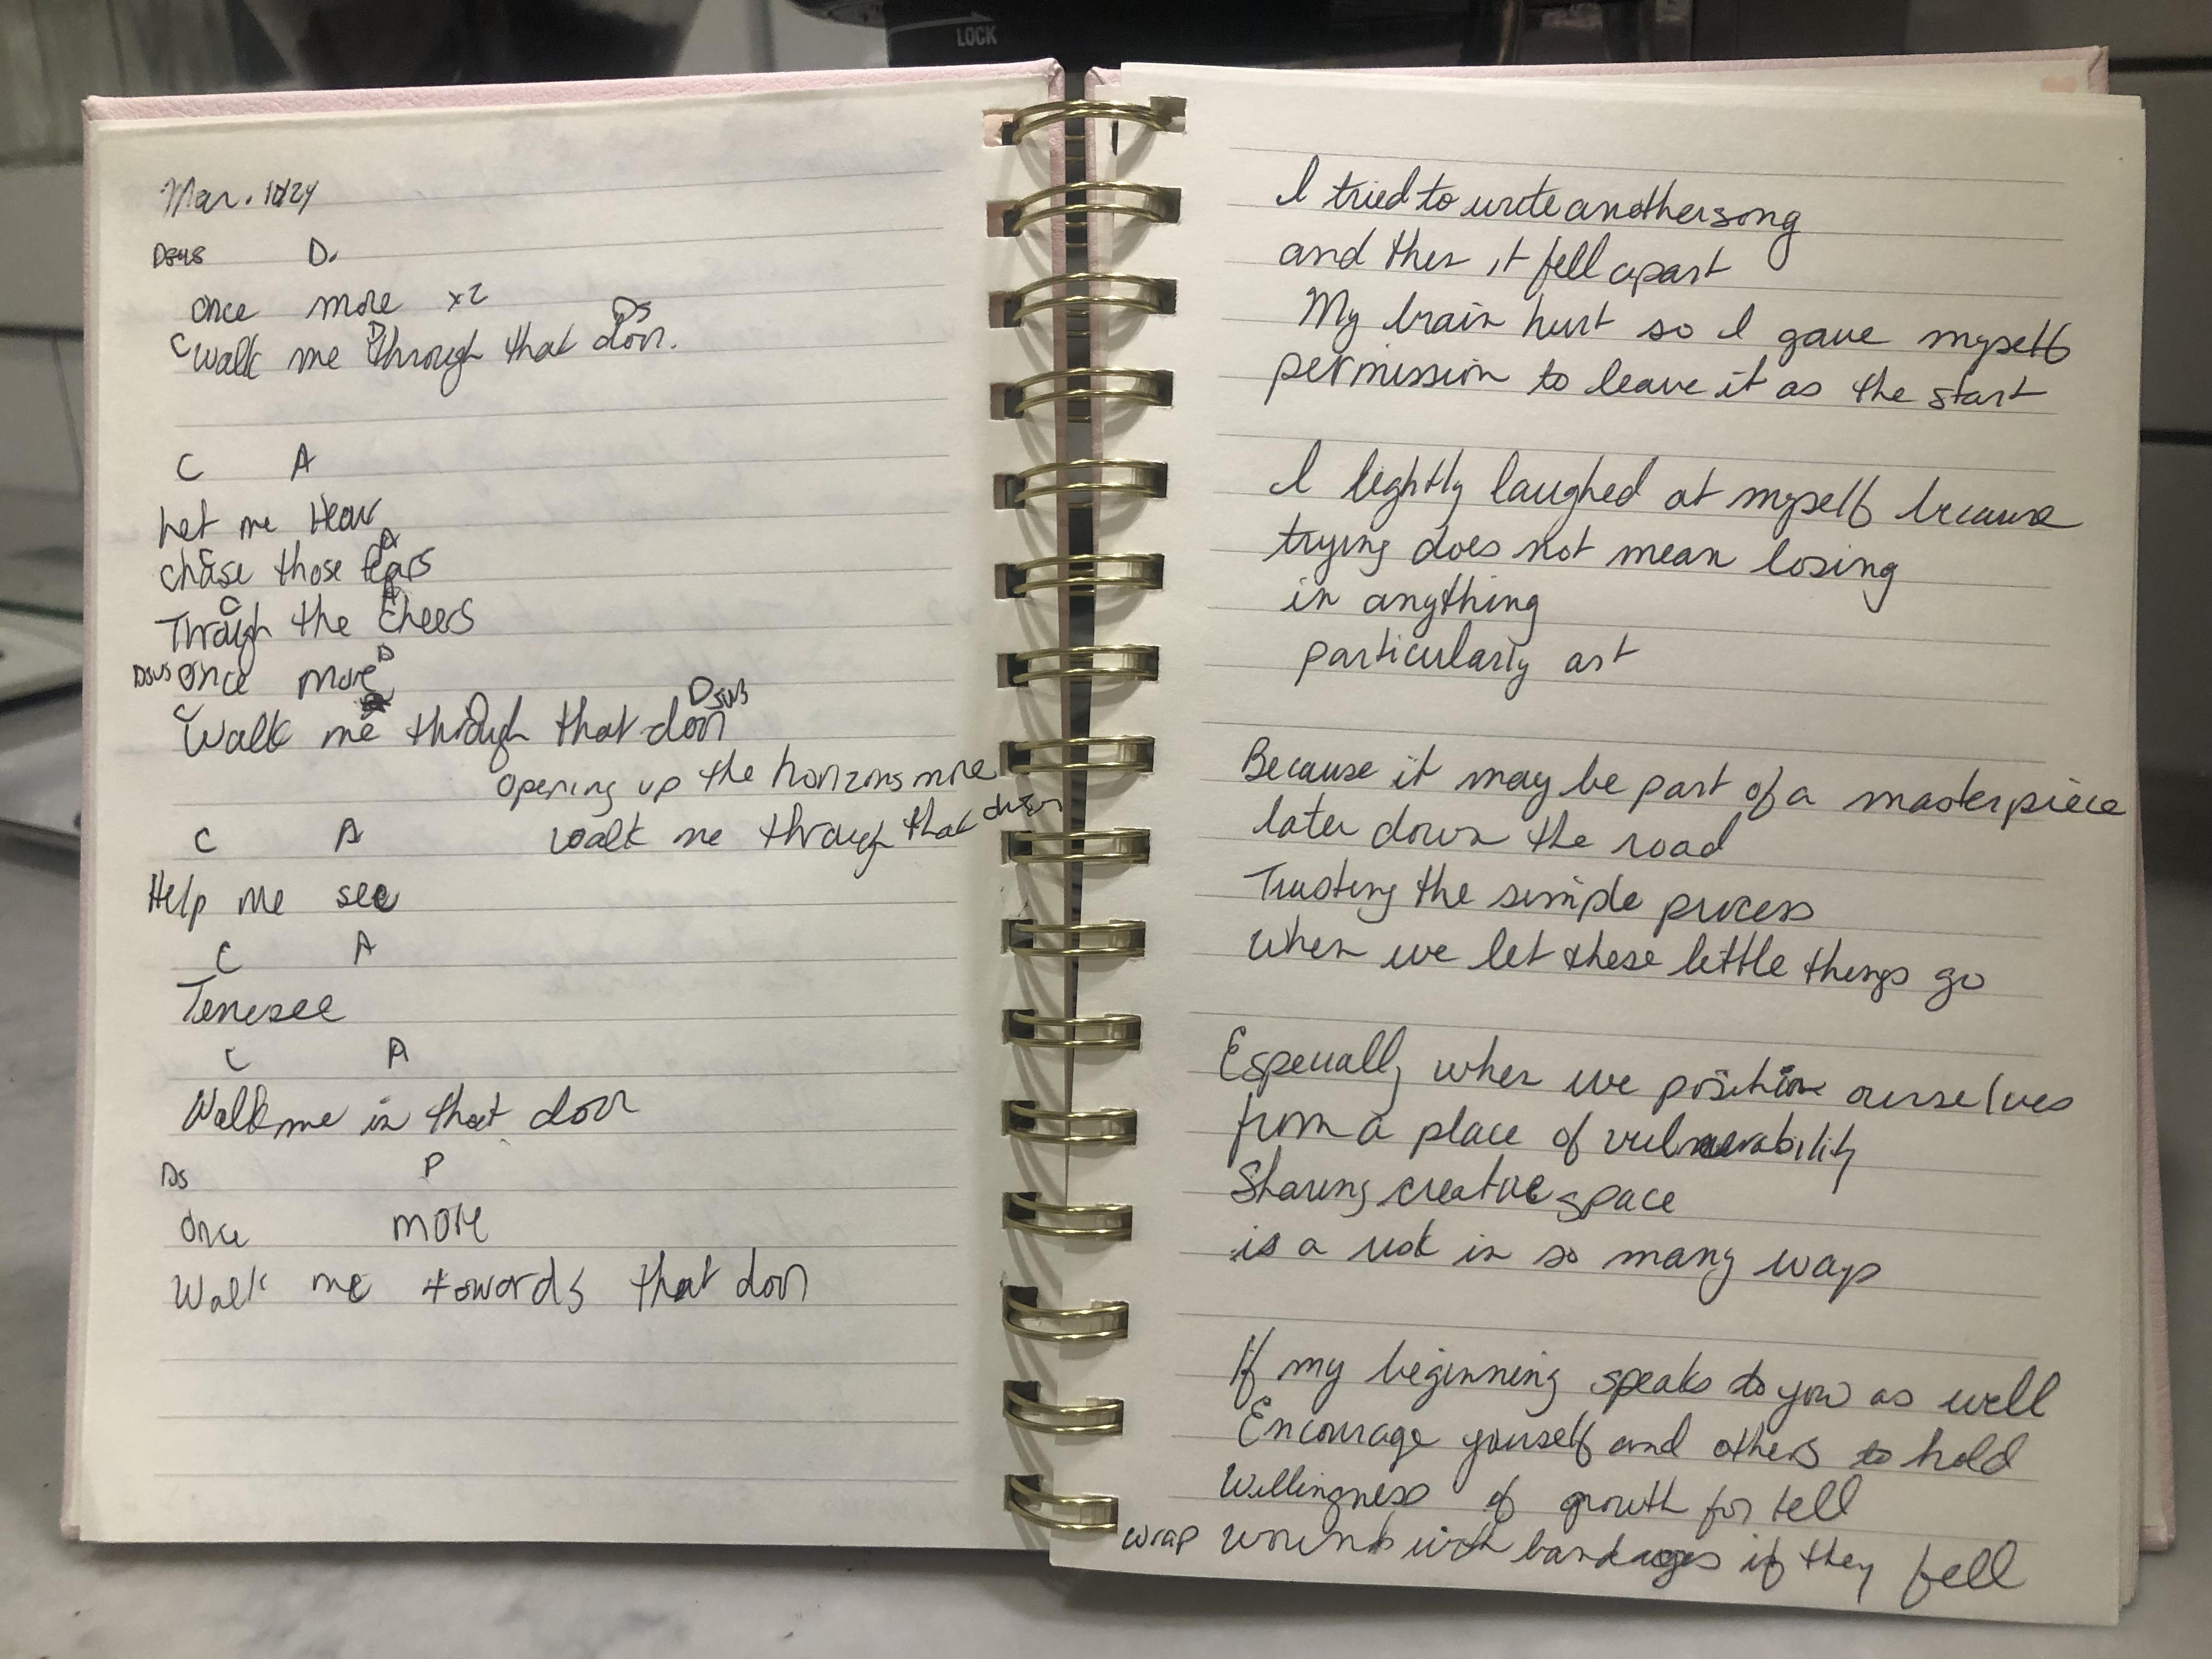 LOCK
Mar. 10/24
Dsus D.
once more x2
Ds
C D
walk me through that door.
C A
Let me Hear
A
chase those fears
C A
Through the cheers
Dsus once more D
C D Dsus
Walk me through that door
opening up the horizons more
walk me through that door
C A
Help me see
C A
Tenesee
C A
Walk me in that door
Ds D
once more
Walk me towards that door
I tried to write another song
and then it fell apart
My brain hurt so I gave myself
permission to leave it as the start
I lightly laughed at myself because
trying does not mean losing
in anything
particularly art
Because it may be part of a masterpiece
later down the road
Trusting the simple process
when we let these little things go
Especially when we position ourselves
from a place of vulnerability
Sharing creative space
is a risk in so many ways
If my beginning speaks to you as well
Encourage yourself and others to hold
Willingness of growth for tell
wrap wounds with bandages if they fell